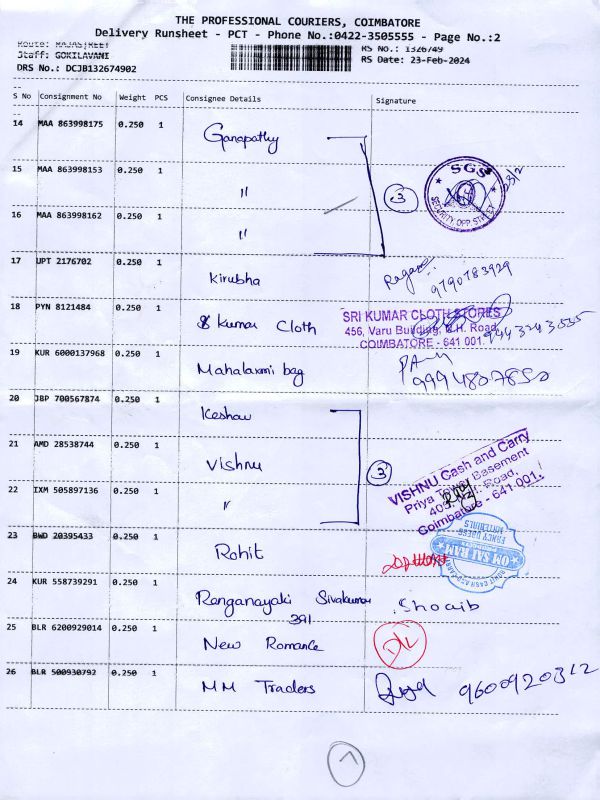 THE PROFESSIONAL COURIERS, COIMBATORE
Delivery Runsheet - PCT - Phone No.:0422-3505555 - Page No.:2
Staff: GOKILAVANI
RS No.: 1326749
DRS No.: DCJB132674902
RS Date: 23-Feb-2024
S No Consignment No Weight PCS Consignee Details Signature
14 MAA 863998175 0.250 1 Ganapathy
SGS
SECURITY OPP STREET
15 MAA 863998153 0.250 1 "
3
16 MAA 863998162 0.250 1 "
17 UPT 2176702 0.250 1 Kirubha
9790783929
18 PYN 8121484 0.250 1 S Kumar Cloth
SRI KUMAR CLOTH STORES
456, Varu Building, B.H. Road,
COIMBATORE - 641 001.
19 KUR 6000137968 0.250 1 Mahalaxmi bag
20 JBP 700567874 0.250 1 Keshav
21 AMD 28538744 0.250 1 Vishnu
3
VISHNU Cash and Carry
Priya Basement
Road,
Coimbatore - 641 001.
22 IXM 505897136 0.250 1 "
23 BWD 20395433 0.250 1 Rohit
OM SAI RAM
FANCY DRESS
MATERIALS
24 KUR 558739291 0.250 1 Ranganayaki Sivakumar Shoaib
391
25 BLR 6200929014 0.250 1 New Romance
D/L
26 BLR 500930792 0.250 1 MM Traders
9600920312